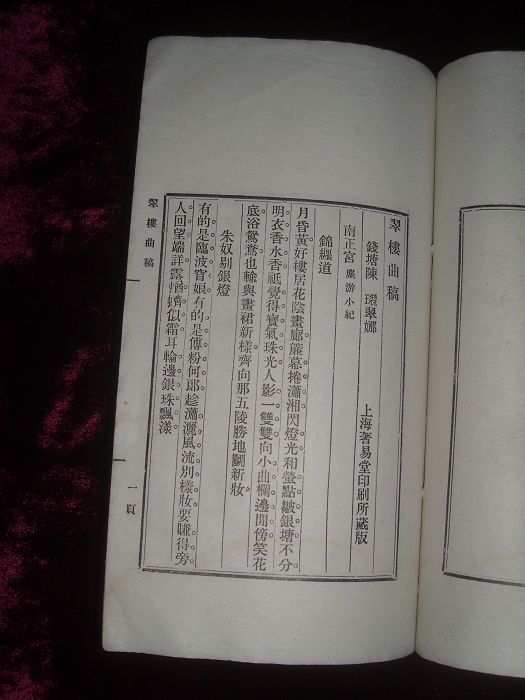 翠樓曲稿
錢塘陳 翠娜
上海著易堂印刷所藏版
南正宮 塵游小紀
錦纏道
月昏黃好樓居花陰畫廊簾幕捲瀟湘閃燈光和螢點皴銀塘不分
明衣香水香祗覺得寶氣珠光人影一雙雙向小曲欄邊閒傍笑花
底浴鴛鴦也輸與畫裙新樣齊向那五陵勝地鬬新妝
朱奴剔銀燈
有的是臨波窅娘有的是傅粉何郎趁瀟灑風流別樣妝要賺得旁
人回望端詳露蝤蠐似霜耳輪邊銀珠飄漾
翠樓曲稿
一頁